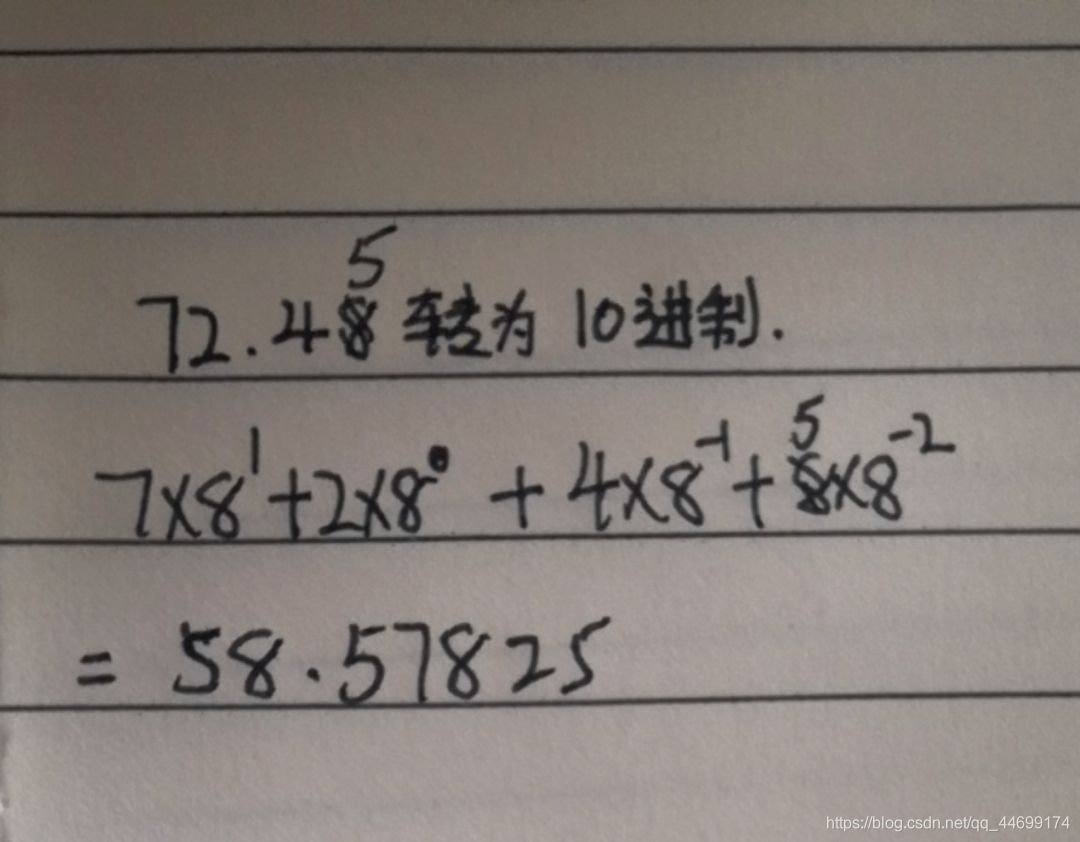 72.45 转为 10进制.
7×8¹+2×8⁰ + 4×8⁻¹+5×8⁻²
= 58.57825
https://blog.csdn.net/qq_44699174